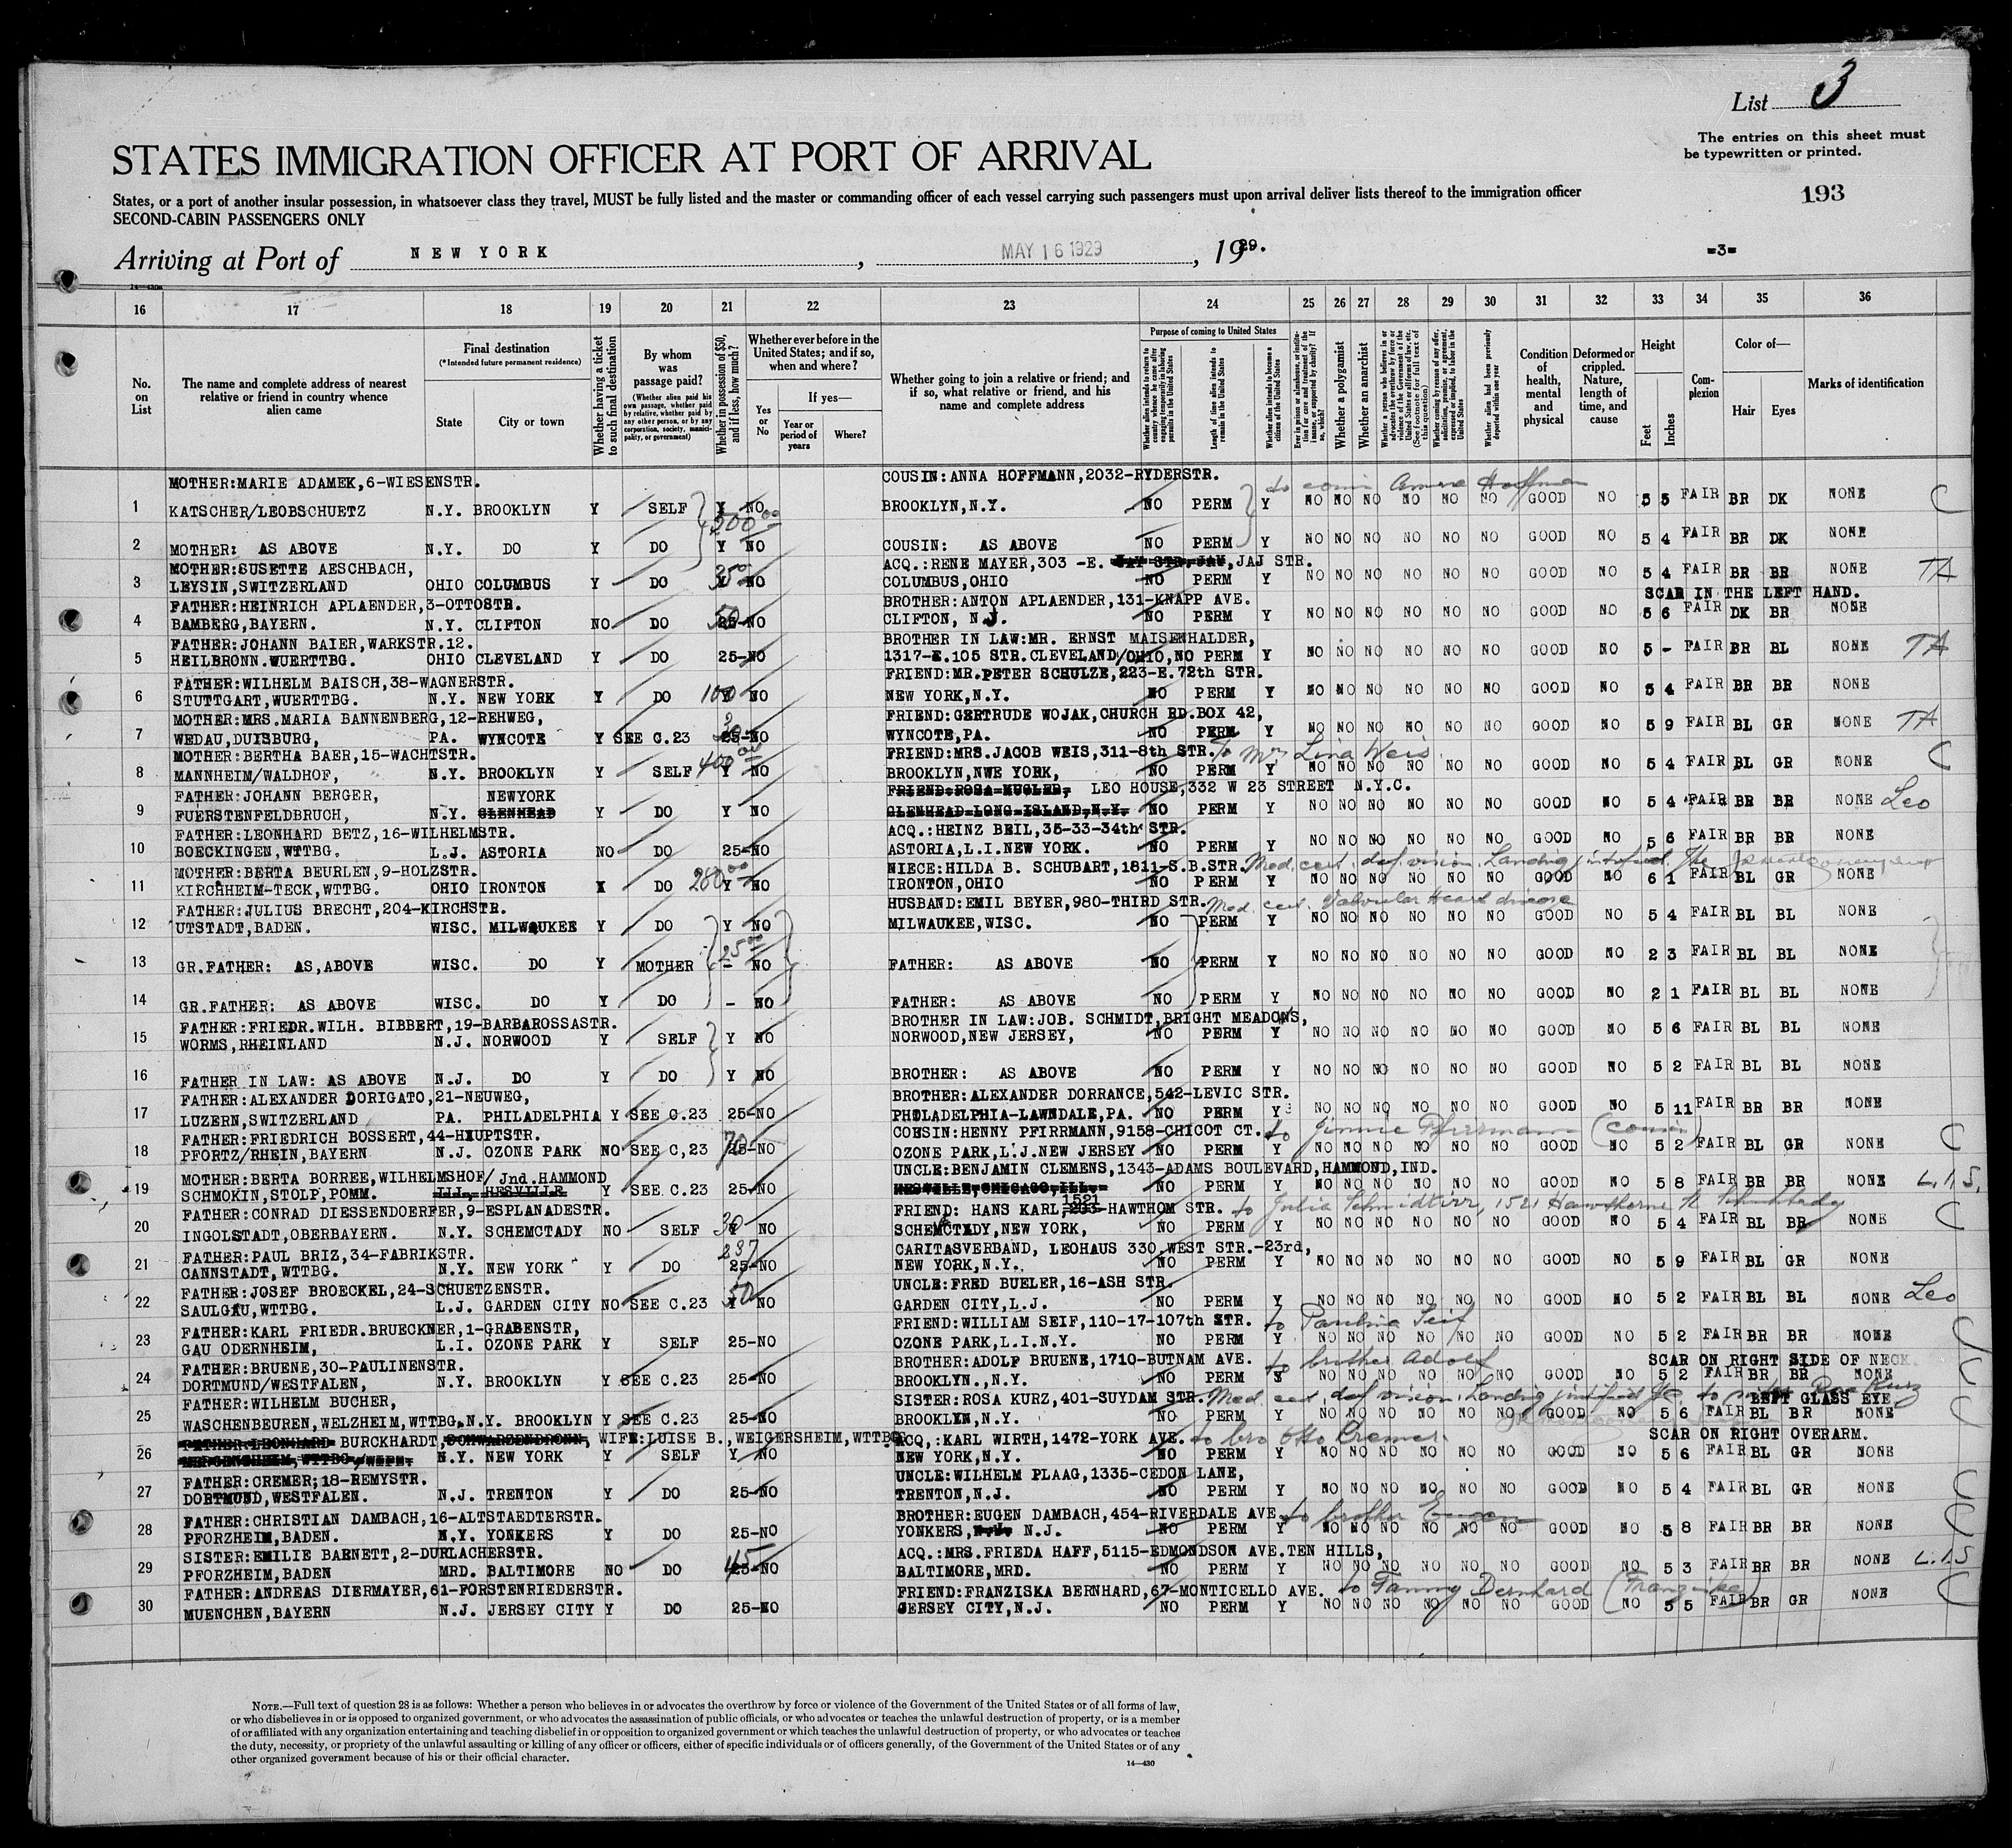 List 3
The entries on this sheet must
be typewritten or printed.
STATES IMMIGRATION OFFICER AT PORT OF ARRIVAL
193
States, or a port of another insular possession, in whatsoever class they travel, MUST be fully listed and the master or commanding officer of each vessel carrying such passengers must upon arrival deliver lists thereof to the immigration officer
SECOND-CABIN PASSENGERS ONLY
Arriving at Port of NEW YORK, MAY 16 1929, 1929. -3-
16 17 18 19 20 21 22 23 24 25 26 27 28 29 30 31 32 33 34 35 36
No. on List
The name and complete address of nearest relative or friend in country whence alien came
Final destination (*Intended future permanent residence)
State City or town
Whether having a ticket to such final destination
By whom was passage paid? (Whether alien paid his own passage, whether paid by relative, whether paid by any other person, or by any corporation, society, municipality, or government)
Whether in possession of $50, and if less, how much?
Whether ever before in the United States; and if so, when and where?
Yes or No If yes— Year or period of years Where?
Whether going to join a relative or friend; and if so, what relative or friend, and his name and complete address
Purpose of coming to United States
Whether alien intends to return to country whence he came after engaging temporarily in laboring pursuits in the United States
Length of time alien intends to remain in the United States
Whether alien intends to become a citizen of the United States
Ever in prison or almshouse, or institution for care and treatment of the insane, or supported by charity? If so, which?
Whether a polygamist
Whether an anarchist
Whether a person who believes in or advocates the overthrow by force or violence of the Government of the United States or all forms of law, etc. (See footnote for full text of this question)
Whether coming by reason of any offer, solicitation, promise, or agreement, expressed or implied, to labor in the United States
Whether alien had been previously deported within one year
Condition of health, mental and physical
Deformed or crippled. Nature, length of time, and cause
Height Feet Inches
Complexion
Color of— Hair Eyes
Marks of identification
MOTHER:MARIE ADAMEK,6-WIESENSTR. COUSIN:ANNA HOFFMANN,2032-RYDERSTR.
1 KATSCHER/LEOBSCHUETZ N.Y. BROOKLYN Y SELF Y NO BROOKLYN,N.Y. NO PERM Y NO NO NO NO NO NO GOOD NO 5 5 FAIR BR DK NONE C
2 MOTHER: AS ABOVE N.Y. DO Y DO Y NO COUSIN: AS ABOVE NO PERM Y NO NO NO NO NO NO GOOD NO 5 4 FAIR BR DK NONE
MOTHER:SUSETTE AESCHBACH, ACQ.:RENE MAYER,303 -E. JAJ STR.
3 LEYSIN,SWITZERLAND OHIO COLUMBUS Y DO Y NO COLUMBUS,OHIO NO PERM Y NO NO NO NO NO NO GOOD NO 5 4 FAIR BR BR NONE TA
FATHER:HEINRICH APLAENDER,3-OTTOSTR. BROTHER:ANTON APLAENDER,131-KNAPP AVE. SCAR IN THE LEFT HAND.
4 BAMBERG,BAYERN. N.Y. CLIFTON NO DO 25- NO CLIFTON, N.J. NO PERM Y NO NO NO NO NO NO GOOD NO 5 6 FAIR DK BR NONE
FATHER:JOHANN BAIER,WARKSTR.12. BROTHER IN LAW:MR. ERNST MAISENHALDER,
5 HEILBRONN.WUERTTBG. OHIO CLEVELAND Y DO 25-NO 1317-E.105 STR.CLEVELAND/OHIO,NO PERM Y NO NO NO NO NO NO GOOD NO 5 - FAIR BR BL NONE TA
FATHER:WILHELM BAISCH,38-WAGNERSTR. FRIEND:MR.PETER SCHULZE,223-E.72th STR.
6 STUTTGART,WUERTTBG. N.Y. NEW YORK Y DO 100 Y NO NEW YORK,N.Y. NO PERM Y NO NO NO NO NO NO GOOD NO 5 4 FAIR BR BR NONE
MOTHER:MRS.MARIA BANNENBERG,12-REHWEG, FRIEND:GERTRUDE WOJAK,CHURCH RD.BOX 42,
7 WEDAU,DUISBURG, PA. WYNCOTE Y SEE C.23 25-NO WYNCOTE,PA. NO PERM Y NO NO NO NO NO NO GOOD NO 5 9 FAIR BL GR NONE TA
MOTHER:BERTHA BAER,15-WACHTSTR. FRIEND:MRS.JACOB WEIS,311-8th STR. to Mrs Lina Weis
8 MANNHEIM/WALDHOF, N.Y. BROOKLYN Y SELF 400 Y NO BROOKLYN,NWE YORK, NO PERM Y NO NO NO NO NO NO GOOD NO 5 4 FAIR BL GR NONE C
FATHER:JOHANN BERGER, NEWYORK FRIEND:ROSA MUGLER, LEO HOUSE,332 W 23 STREET N.Y.C.
9 FUERSTENFELDBRUCH, N.Y. GLENHEAD Y DO Y NO GLENHEAD-LONG-ISLAND,N.Y. NO PERM Y NO NO NO NO NO NO GOOD NO 5 4 FAIR BR BR NONE Leo
FATHER:LEONHARD BETZ,16-WILHELMSTR. ACQ.:HEINZ BEIL,35-33-34th STR.
10 BOECKINGEN,WTTBG. L.J. ASTORIA NO DO 25-NO ASTORIA,L.I.NEW YORK. NO PERM Y NO NO NO NO NO NO GOOD NO 5 6 FAIR BR BR NONE
MOTHER:BERTA BEURLEN,9-HOLZSTR. NIECE:HILDA B. SCHUBART,1811-S.B.STR. Med. cert. def vision. Landing
11 KIRCHHEIM-TECK,WTTBG. OHIO IRONTON X DO 280 Y NO IRONTON,OHIO NO PERM Y NO NO NO NO NO NO GOOD NO 6 1 FAIR BL GR NONE
FATHER:JULIUS BRECHT,204-KIRCHSTR. HUSBAND:EMIL BEYER,980-THIRD STR. Med. cert. Valvular Heart disease
12 UTSTADT,BADEN. WISC. MILWAUKEE Y DO Y NO MILWAUKEE,WISC. NO PERM Y NO NO NO NO NO NO GOOD NO 5 4 FAIR BL BL NONE
13 GR.FATHER: AS,ABOVE WISC. DO Y MOTHER - NO FATHER: AS ABOVE NO PERM Y NO NO NO NO NO NO GOOD NO 2 3 FAIR BL BL NONE
14 GR.FATHER: AS ABOVE WISC. DO Y DO - NO FATHER: AS ABOVE NO PERM Y NO NO NO NO NO NO GOOD NO 2 1 FAIR BL BL NONE
FATHER:FRIEDR.WILH. BIBBERT,19-BARBAROSSASTR. BROTHER IN LAW:JOB. SCHMIDT,BRIGHT MEADOWS,
15 WORMS,RHEINLAND N.J. NORWOOD Y SELF Y NO NORWOOD,NEW JERSEY, NO PERM Y NO NO NO NO NO NO GOOD NO 5 6 FAIR BL BL NONE
16 FATHER IN LAW: AS ABOVE N.J. DO Y DO Y NO BROTHER: AS ABOVE NO PERM Y NO NO NO NO NO NO GOOD NO 5 2 FAIR BL BL NONE
FATHER:ALEXANDER DORIGATO,21-NEUWEG, BROTHER:ALEXANDER DORRANCE,542-LEVIC STR.
17 LUZERN,SWITZERLAND PA. PHILADELPHIA Y SEE C.23 25-NO PHILADELPHIA-LAWNDALE,PA. NO PERM Y NO NO NO NO NO NO GOOD NO 5 11 FAIR BR BR NONE
FATHER:FRIEDRICH BOSSERT,44-HAUPTSTR. COUSIN:HENNY PFIRRMANN,9158-CHICOT CT. to Jinnie Pfirrmann (cousin)
18 PFORTZ/RHEIN,BAYERN N.J. OZONE PARK NO SEE C,23 25-NO OZONE PARK,L.J.NEW JERSEY NO PERM Y NO NO NO NO NO NO GOOD NO 5 2 FAIR BL GR NONE C
MOTHER:BERTA BORREE,WILHELMSHOF/ Jnd.HAMMOND UNCLE:BENJAMIN CLEMENS,1343-ADAMS BOULEVARD,HAMMOND,IND.
19 SCHMOKIN,STOLP,POMM. ILL. HESVILLE Y SEE C.23 25-NO HESVILLE,CHICAGO,ILL. NO PERM Y NO NO NO NO NO NO GOOD NO 5 8 FAIR BR BR NONE L.I.S.
FATHER:CONRAD DIESSENDOERFER,9-ESPLANADESTR. FRIEND: HANS KARL, 1521 HAWTHOM STR. to Julia Schmidtirr, 1521 Hawthorne St Schenectady
20 INGOLSTADT,OBERBAYERN. N.Y. SCHEMCTADY NO SELF 30 Y NO SCHEMCTADY,NEW YORK, NO PERM Y NO NO NO NO NO NO GOOD NO 5 4 FAIR BL BR NONE C
FATHER:PAUL BRIZ,34-FABRIKSTR. 237 CARITASVERBAND, LEOHAUS 330 WEST STR.-23rd,
21 CANNSTADT,WTTBG. N.Y. NEW YORK Y DO 25-NO NEW YORK,N.Y. NO PERM Y NO NO NO NO NO NO GOOD NO 5 9 FAIR BL GR NONE
FATHER:JOSEF BROECKEL,24-SCHUETZENSTR. UNCLE:FRED BUELER,16-ASH STR.
22 SAULGAU,WTTBG. L.J. GARDEN CITY NO SEE C.23 50 Y NO GARDEN CITY,L.J. NO PERM Y NO NO NO NO NO NO GOOD NO 5 2 FAIR BL BL NONE Leo
FATHER:KARL FRIEDR.BRUECKNER,1-GRABENSTR, FRIEND:WILLIAM SEIF,110-17-107th STR. to Paulina Seif
23 GAU ODERNHEIM, L.I. OZONE PARK Y SELF 25-NO OZONE PARK,L.I.N.Y. NO PERM Y NO NO NO NO NO NO GOOD NO 5 2 FAIR BR BR NONE C
FATHER:BRUENE,30-PAULINENSTR. BROTHER:ADOLF BRUENE,1710-BUTNAM AVE. to brother Adolf SCAR ON RIGHT SIDE OF NECK.
24 DORTMUND/WESTFALEN, N.Y. BROOKLYN Y SEE C.23 25-NO BROOKLYN.,N.Y. NO PERM Y NO NO NO NO NO NO GOOD NO 5 2 FAIR BR BR NONE C
FATHER:WILHELM BUCHER, SISTER:ROSA KURZ,401-SUYDAM STR. Med. cert. def vision. Landing LEFT GLASS EYE
25 WASCHENBEUREN,WELZHEIM,WTTBG,N.Y. BROOKLYN Y SEE C.23 25-NO BROOKLYN,N.Y. NO PERM Y NO NO NO NO NO NO GOOD NO 5 6 FAIR BL BR NONE C
FATHER:LEONHARD BURCKHARDT, WIFE:LUISE B.,WEIGERSHEIM,WTTBG. ACQ,:KARL WIRTH,1472-YORK AVE. to bro Otto Bremer. SCAR ON RIGHT OVERARM.
26 N.Y. NEW YORK Y SELF Y NO NEW YORK,N.Y. NO PERM Y NO NO NO NO NO NO GOOD NO 5 6 FAIR BL GR NONE
FATHER:CREMER;18-REMYSTR. UNCLE:WILHELM PLAAG,1335-CEDON LANE,
27 DORTMUND,WESTFALEN. N.J. TRENTON Y DO 25-NO TRENTON,N.J. NO PERM Y NO NO NO NO NO NO GOOD NO 5 4 FAIR BL GR NONE C
FATHER:CHRISTIAN DAMBACH,16-ALTSTAEDTERSTR. BROTHER:EUGEN DAMBACH,454-RIVERDALE AVE. to brother Eugen
28 PFORZHEIM,BADEN. N.Y. YONKERS Y DO 25-NO YONKERS, N.J. NO PERM Y NO NO NO NO NO NO GOOD NO 5 8 FAIR BR BR NONE C
SISTER:EMILIE BARNETT,2-DURLACHERSTR. ACQ.:MRS.FRIEDA HAFF,5115-EDMONDSON AVE.TEN HILLS,
29 PFORZHEIM,BADEN MRD. BALTIMORE NO DO 45 NO BALTIMORE,MRD. NO PERM Y NO NO NO NO NO NO GOOD NO 5 3 FAIR BR BR NONE L.I.S
FATHER:ANDREAS DIERMAYER,61-FORSTENRIEDERSTR. FRIEND:FRANZISKA BERNHARD,67-MONTICELLO AVE. to Fanny Bernhard (Franziska)
30 MUENCHEN,BAYERN N.J. JERSEY CITY Y DO 25-NO JERSEY CITY,N.J. NO PERM Y NO NO NO NO NO NO GOOD NO 5 5 FAIR BR GR NONE C
NOTE.—Full text of question 28 is as follows: Whether a person who believes in or advocates the overthrow by force or violence of the Government of the United States or of all forms of law,
or who disbelieves in or is opposed to organized government, or who advocates the assassination of public officials, or who advocates or teaches the unlawful destruction of property, or is a member
of or affiliated with any organization entertaining and teaching disbelief in or opposition to organized government or which teaches the unlawful destruction of property, or who advocates or teaches
the duty, necessity, or propriety of the unlawful assaulting or killing of any officer or officers, either of specific individuals or of officers generally, of the Government of the United States or of any
other organized government because of his or their official character.
14—430